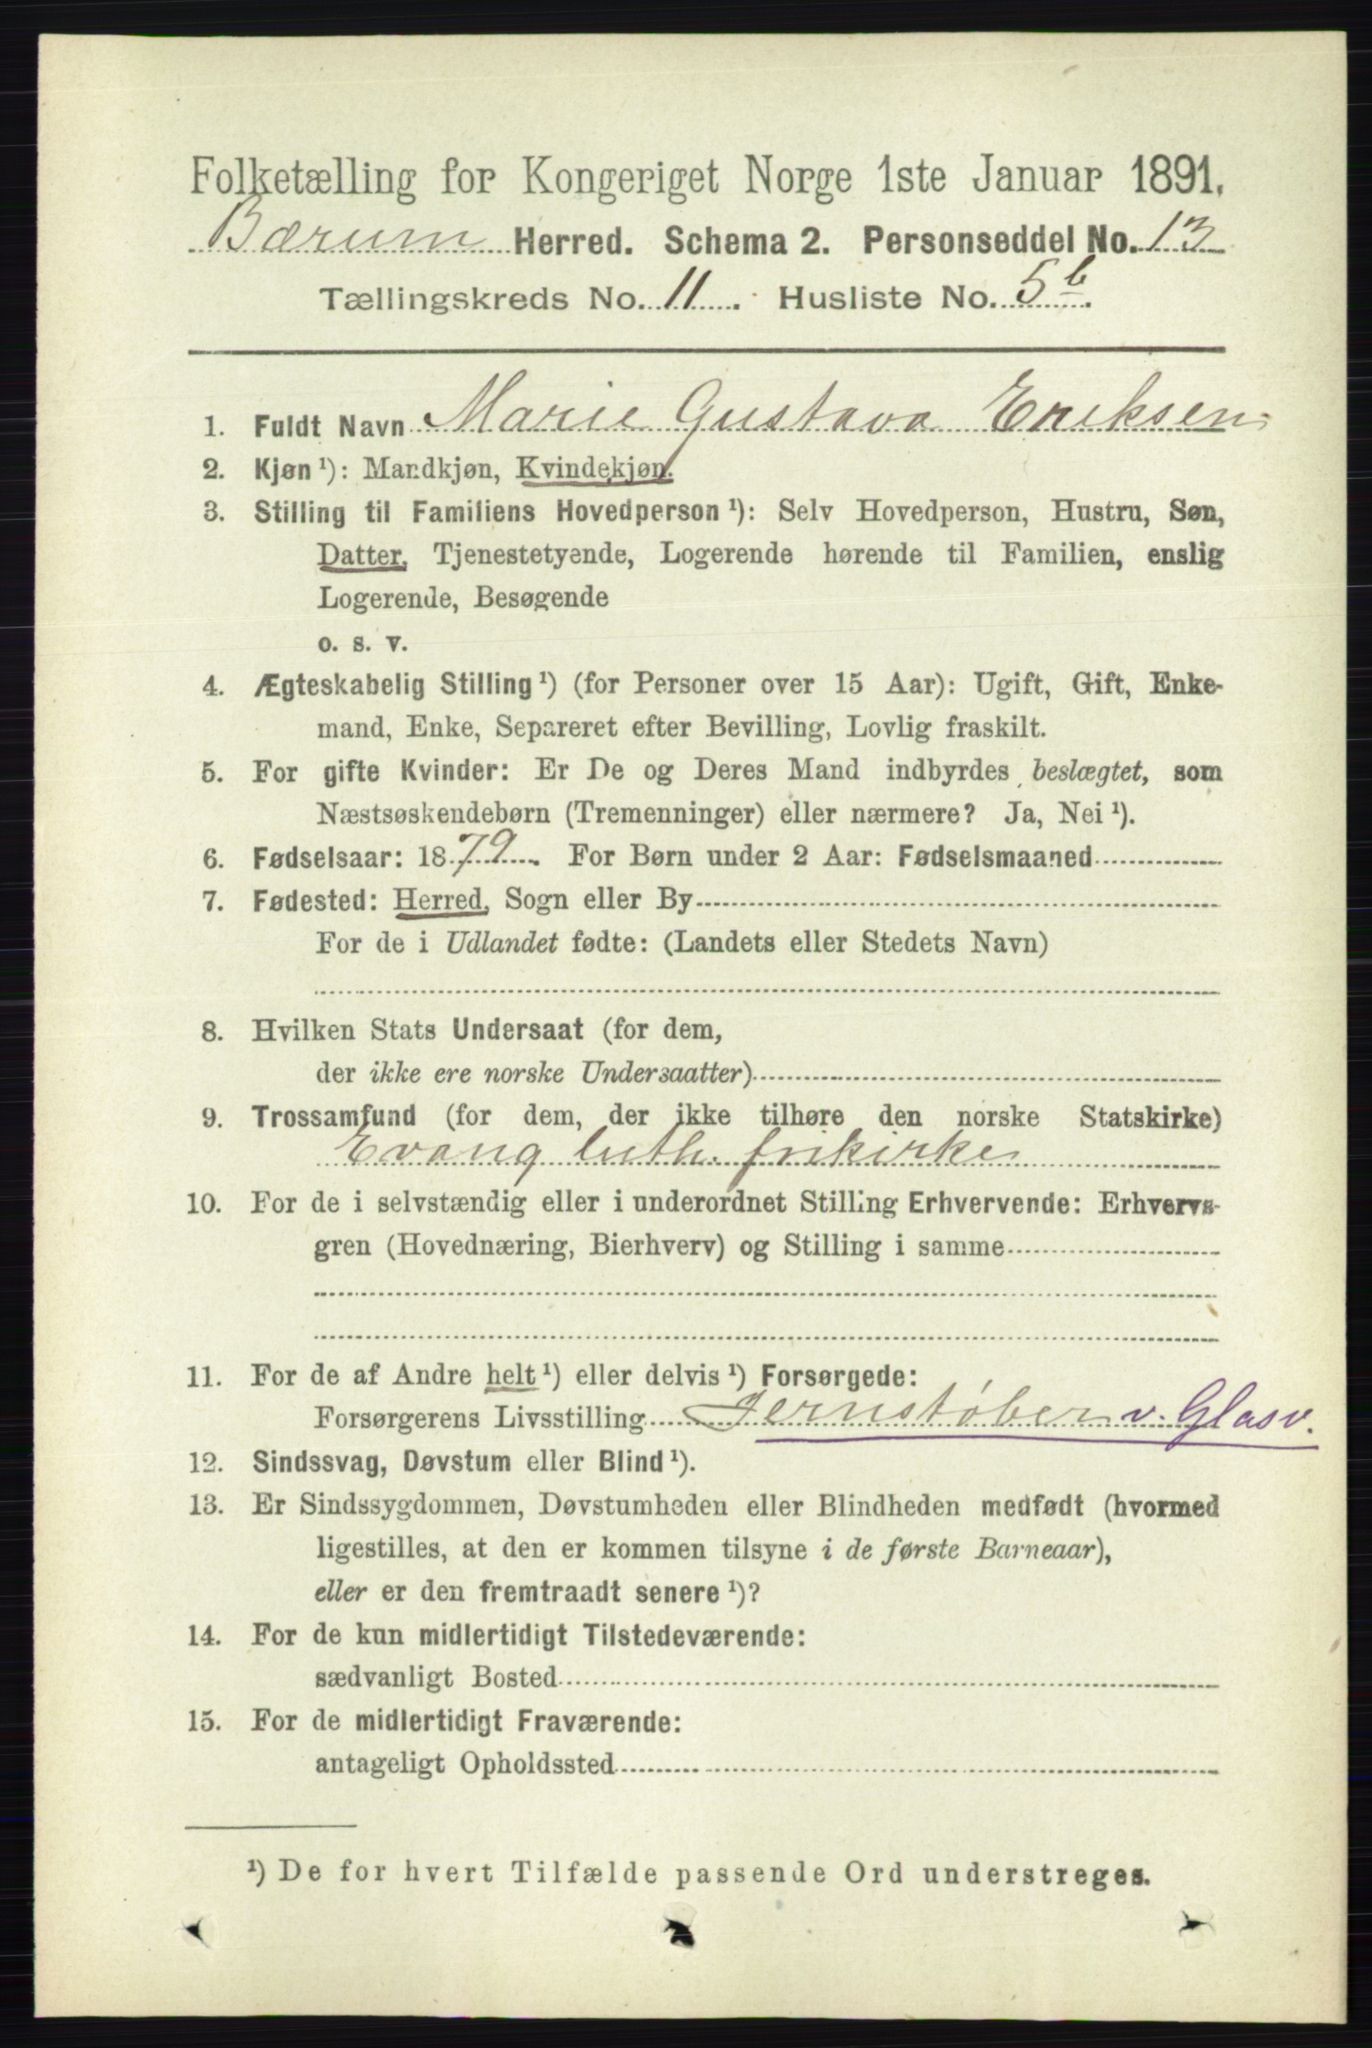 Folketælling for Kongeriget Norge 1ste Januar 1891.
Bærum Herred. Schema 2. Personseddel No. 13
Tællingskreds No. 11. Husliste No. 5b.
1. Fuldt Navn Marie Gustava Eriksen
2. Kjøn ¹): Mandkjøn, Kvindekjøn.
3. Stilling til Familiens Hovedperson ¹): Selv Hovedperson, Hustru, Søn,
Datter, Tjenestetyende, Logerende hørende til Familien, enslig
Logerende, Besøgende
o. s. v.
4. Ægteskabelig Stilling ¹) (for Personer over 15 Aar): Ugift, Gift, Enke-
mand, Enke, Separeret efter Bevilling, Lovlig fraskilt.
5. For gifte Kvinder: Er De og Deres Mand indbyrdes beslægtet, som
Næstsøskendebørn (Tremenninger) eller nærmere? Ja, Nei ¹).
6. Fødselsaar: 1879. For Børn under 2 Aar: Fødselsmaaned
7. Fødested: Herred, Sogn eller By
For de i Udlandet fødte: (Landets eller Stedets Navn)
8. Hvilken Stats Undersaat (for dem,
der ikke ere norske Undersaatter)
9. Trossamfund (for dem, der ikke tilhøre den norske Statskirke)
Evang luth. frikirke
10. For de i selvstændig eller i underordnet Stilling Erhvervende: Erhvervs-
gren (Hovednæring, Bierhverv) og Stilling i samme
11. For de af Andre helt ¹) eller delvis ¹) Forsørgede:
Forsørgerens Livsstilling Jernstøber v. Glasv.
12. Sindssvag, Døvstum eller Blind ¹).
13. Er Sindssygdommen, Døvstumheden eller Blindheden medfødt (hvormed
ligestilles, at den er kommen tilsyne i de første Barneaar),
eller er den fremtraadt senere ¹)?
14. For de kun midlertidigt Tilstedeværende:
sædvanligt Bosted
15. For de midlertidigt Fraværende:
antageligt Opholdssted
¹) De for hvert Tilfælde passende Ord understreges.